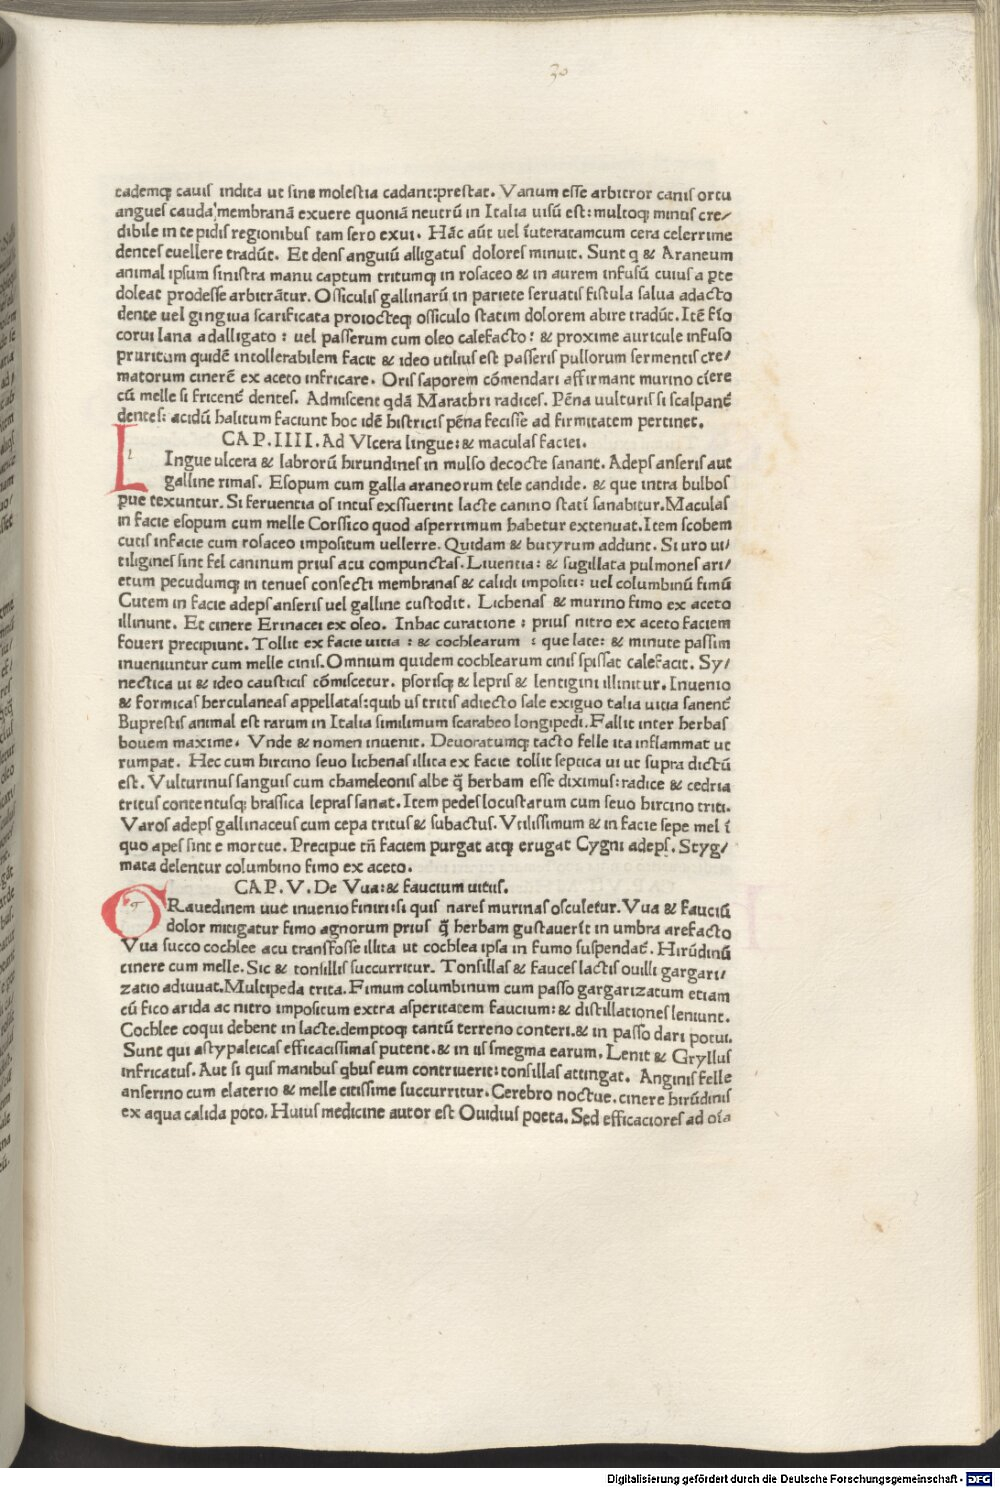 30
eademq; cauis indita ut sine molestia cadant:prestat. Vanum esse arbitror canis ortu
angues cauda membranā exuere quoniā neutrū in Italia uisū est: multoq; minus cre/
dibile in tepidis regionibus tam sero exui. Hāc aūt uel īueteratamcum cera celerrime
dentes euellere tradūt. Et dens anguiū alligatus dolores minuit. Sunt q & Araneum
animal ipsum sinistra manu captum tritumq; in rosaceo & in aurem infusū cuius a ꝑte
doleat prodesse arbitrātur. Ossiculis gallinarū in pariete seruatis fistula salua adacto
dente uel gingiua scarificata proiocteq; ossiculo statim dolorem abire tradūt. Itē fīo
corui lana adalligato : uel passerum cum oleo calefacto : & proxime auricule infuso
pruritum quidē intollerabilem facit & ideo utilius est passeris pullorum sermentis cre/
matorum cinerē ex aceto infricare. Oris saporem cōmendari affirmant murino cīere
cū melle si fricent̄ dentes. Admiscent qdā Marathri radices. Pēna uulturis si scalpant̄
dentes: acidū halitum faciunt hoc idē histricis pēna fecisse ad firmitatem pertinet.
CAP.IIII.Ad Vlcera lingue: & maculas faciei.
L Ingue ulcera & labrorū hirundines in mulso decocte sanant. Adeps anseris aut
galline rimas. Esopum cum galla araneorum tele candide. & que intra bulbos
pue texuntur. Si feruentia os intus exssuerint lacte canino statī sanabitur.Maculas
in facie esopum cum melle Corssico quod asperrimum habetur extenuat.Item scobem
cutis infacie cum rosaceo impositum uellerre. Quidam & butyrum addunt. Si uro ui/
tiligines sint fel caninum prius acu compunctas. Liuentia: & sugillata pulmones ari/
etum pecudumq; in tenues consecti membranas & calidi impositi: uel columbinū fimū
Cutem in facie adeps anseris uel galline custodit. Lichenas & murino fimo ex aceto
illinunt. Et cinere Erinacei ex oleo. Inhac curatione : prius nitro ex aceto faciem
foueri precipiunt. Tollit ex facie uitia : & cochlearum : que late: & minute passim
inueniuntur cum melle cinis. Omnium quidem cochlearum cinis spissat calefacit. Sy/
nectica ui & ideo causticis cōmiscetur. psorisq; & lepris & lentigini illinitur. Inuenio
& formicas herculaneas appellatas:quib us tritis adiecto sale exiguo talia uitia sanent̄
Buprestis animal est rarum in Italia similimum scarabeo longipedi. Fallit inter herbas
bouem maxime. Vnde & nomen inuenit. Deuoratumq; tacto felle ita inflammat ut
rumpat. Hec cum hircino seuo lichenas illita ex facie tollit septica ui ut supra dictū
est. Vulturinus sanguis cum chameleonis albe q̄ herbam esse diximus:radice & cedria
tritus contentusq; brassica lepras sanat. Item pedes locustarum cum seuo hircino triti.
Varos adeps gallinaceus cum cepa tritus & subactus. Vtilissimum & in facie sepe mel ī
quo apes sint e mortue. Precipue tn̄ faciem purgat atq; erugat Cygni adeps. Styg/
mata delentur columbino fimo ex aceto.
CAP.V.De Vua:& faucium uitiis.
G Rauedinem uue inuenio finiri:si quis nares murinas osculetur. Vua & fauciū
dolor mitigatur fimo agnorum prius q̄ herbam gustauerīt in umbra arefacto
Vua succo cochlee acu transfosse illita ut cochlea ipsa in fumo suspendat̄. Hirūdinū
cinere cum melle. Sic & tonsillis succurritur. Tonsillas & fauces lactis ouilli gargari/
zatio adiuuat.Multipeda trita. Fimum columbinum cum passo gargarizatum etiam
cū fico arida ac nitro impositum extra asperitatem faucium: & distillationes leniunt.
Cochlee coqui debent in lacte.demptoq; tantū terreno conteri.& in passo dari potui.
Sunt qui astypaleicas efficacissimas putent.& in iis smegma earum. Lenit & Gryllus
infricatus. Aut si quis manibus qbus eum contriuerit: tonsillas attingat. Anginis felle
anserino cum elaterio & melle citissime succurritur. Cerebro noctue. cinere hirūdinis
ex aqua calida poto. Huius medicine autor est Ouidius poeta. Sed efficaciores ad oīa
Digitalisierung gefördert durch die Deutsche Forschungsgemeinschaft - DFG